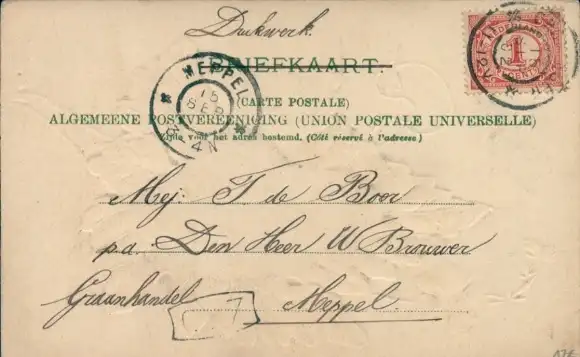 Drukwerk.
BRIEFKAART.
(CARTE POSTALE)
ALGEMEENE POSTVEREENIGING (UNION POSTALE UNIVERSELLE)
Zijde voor het adres bestemd. (Côté réservé à l'adresse)
MEPPEL
15
SEP
NEDERLAND
1
CENT
Mej: T de Boer
p.a. Den Heer W Brouwer
Graanhandel
Meppel.